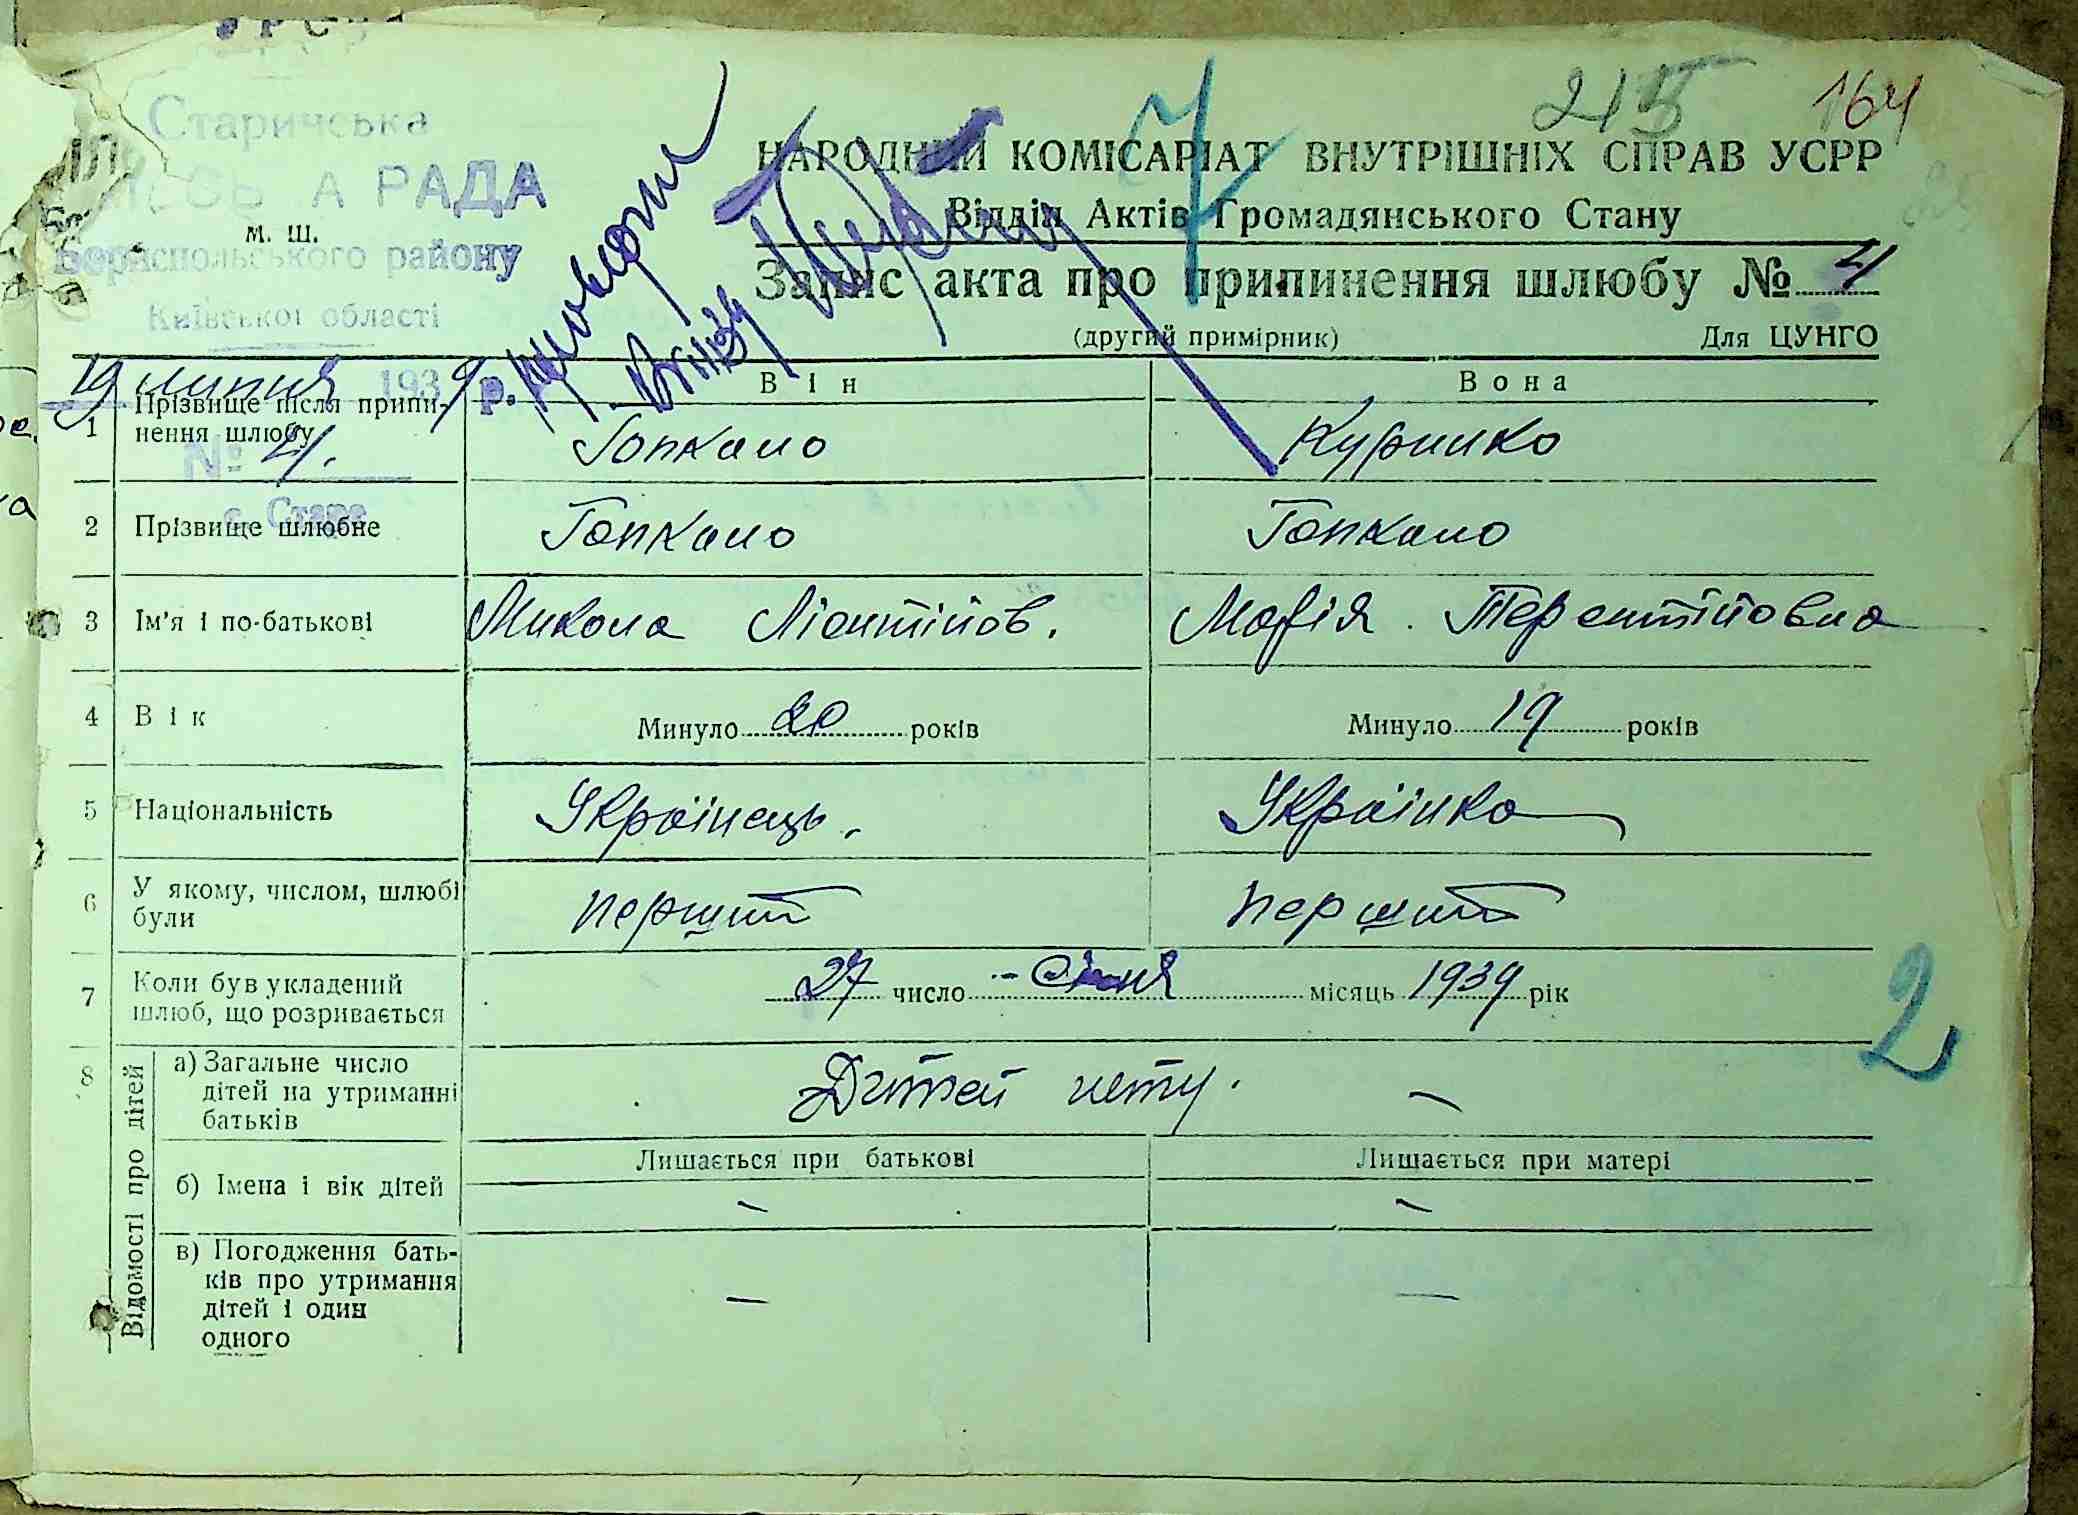 215 164
Старичська
РАДА
м. ш.
Бориспольського району
Київської області
19 липня 1939 р.
№ 4.
с. Старе
7
НАРОДНИЙ КОМІСАРІАТ ВНУТРІШНІХ СПРАВ УСРР
Відділ Актів Громадянського Стану
Запис акта про припинення шлюбу № 4
(другий примірник) Для ЦУНГО
Він Вона
1 Прізвище після припи-
нення шлюбу Гопкало Куринко
2 Прізвище шлюбне Гопкало Гопкало
3 Ім'я і по-батькові Микола Ліонтійов. Марія Терентійовна
4 Вік Минуло 20 років Минуло 19 років
5 Національність Українець. Українка
6 У якому, числом, шлюбі
були перший перший
7 Коли був укладений
шлюб, що розривається 27 число січня місяць 1939 рік
2
8 Відомості про дітей
а) Загальне число
дітей на утриманні
батьків Дитей нету. –
Лишається при батькові Лишається при матері
б) Імена і вік дітей – –
в) Погодження бать-
ків про утримання
дітей і один
одного – –